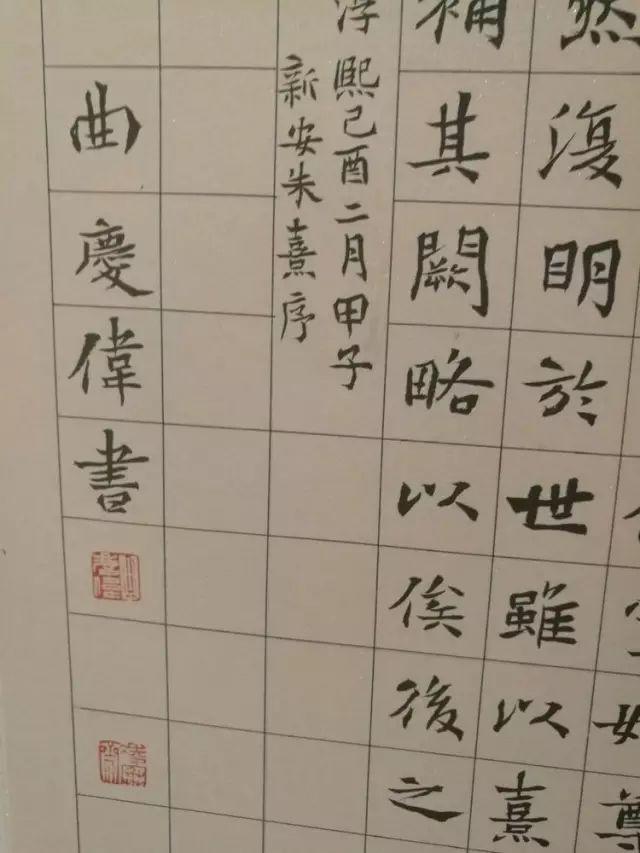 始尊
然復明於世雖以熹
補其闕略以俟後之
淳熙己酉二月甲子
新安朱熹序
曲慶偉書